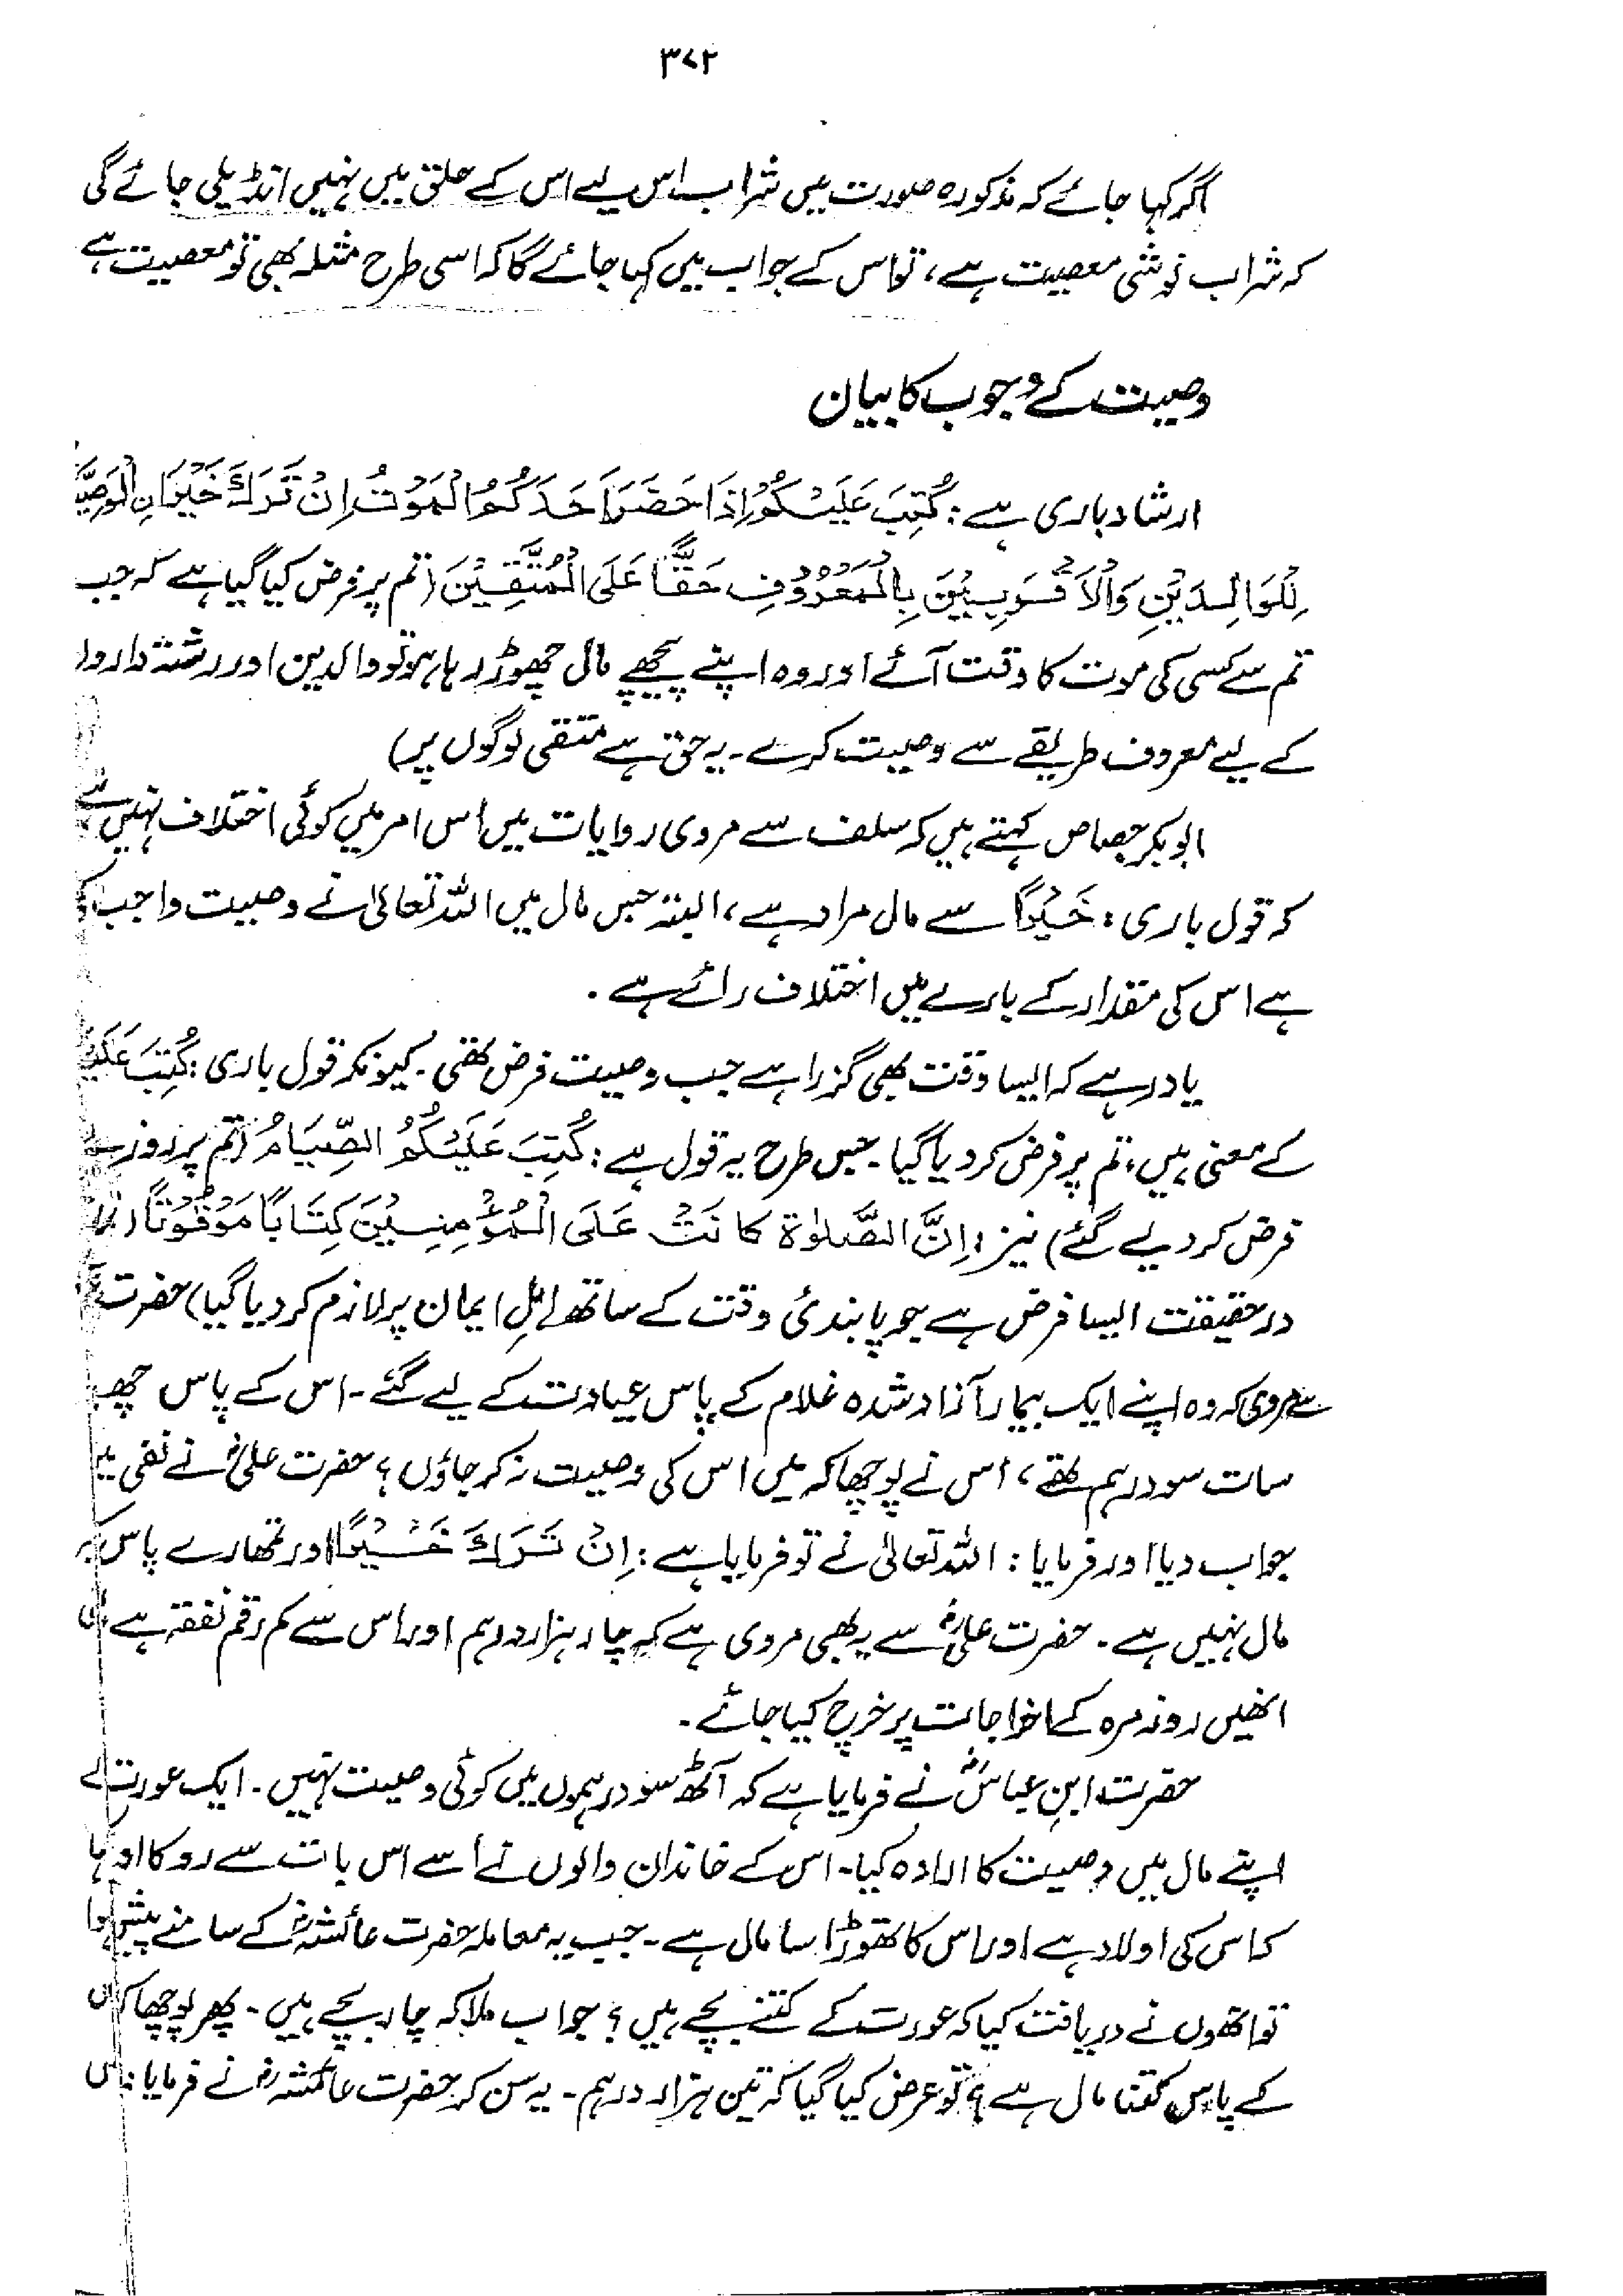 ۳۷۲
اگر کہا جائے کہ مذکورہ صورت میں شراب اس لیے اس کے حلق میں نہیں انڈیلی جائے گی
کہ شراب نوشی معصیت ہے، تو اس کے جواب میں کہا جائے گا کہ اسی طرح مثلہ بھی تو معصیت ہے
وصیت کے وجوب کا بیان
ارشاد باری ہے: كُتِبَ عَلَيْكُمْ اِذَا حَضَرَ اَحَدَكُمُ الْمَوْتُ اِنْ تَرَكَ خَيْرًا نِ الْوَصِيَّ
لِلْوَالِدَيْنِ وَالْاَقْرَبِيْنَ بِالْمَعْرُوْفِ حَقًّا عَلَى الْمُتَّقِيْنَ (تم پر فرض کیا گیا ہے کہ جب
تم سے کسی کی موت کا وقت آئے اور وہ اپنے پیچھے مال چھوڑ رہا ہو تو والدین اور رشتہ داروں
کے لیے معروف طریقے سے وصیت کرے۔ یہ حق ہے متقی لوگوں پر)
ابوبکر جصاص کہتے ہیں کہ سلف سے مروی روایات میں اس امر میں کوئی اختلاف نہیں ہے
کہ قول باری: خَيْرًا سے مال مراد ہے، البتہ جس مال میں اللہ تعالیٰ نے وصیت واجب کی
ہے اس کی مقدار کے بارے میں اختلاف رائے ہے۔
یاد رہے کہ ایسا وقت بھی گزرا ہے جب وصیت فرض تھی۔ کیونکہ قول باری: كُتِبَ عَلَيْكُ
کے معنی ہیں، تم پر فرض کر دیا گیا۔ جس طرح یہ قول ہے: كُتِبَ عَلَيْكُمُ الصِّيَامُ (تم پر روزے
فرض کر دیے گئے) نیز: اِنَّ الصَّلٰوةَ كَانَتْ عَلَى الْمُؤْمِنِيْنَ كِتَابًا مَوْقُوْتًا (
درحقیقت ایسا فرض ہے جو پابندیٔ وقت کے ساتھ اہلِ ایمان پر لازم کر دیا گیا) حضرت
سے مروی کہ وہ اپنے ایک بیمار آزاد شدہ غلام کے پاس عیادت کے لیے گئے۔ اس کے پاس چھ
سات سو درہم تھے، اس نے پوچھا کہ میں اس کی وصیت نہ کر جاؤں؟ حضرت علیؓ نے نفی میں
جواب دیا اور فرمایا: اللہ تعالیٰ نے تو فرمایا ہے: اِنْ تَرَكَ خَيْرًا اور تمھارے پاس
مال نہیں ہے۔ حضرت علیؓ سے یہ بھی مروی ہے کہ چار ہزار درہم اور اس سے کم رقم نفقہ ہے
انھیں روزمرہ کے اخراجات پر خرچ کیا جائے۔
حضرت ابن عباسؓ نے فرمایا ہے کہ آٹھ سو درہموں میں کوئی وصیت نہیں۔ ایک عورت نے
اپنے مال میں وصیت کا ارادہ کیا۔ اس کے خاندان والوں نے اُسے اس بات سے روکا اور
کہ اس کی اولاد ہے اور اس کا تھوڑا سا مال ہے۔ جب یہ معاملہ حضرت عائشہؓ کے سامنے پیش ہوا
تو انھوں نے دریافت کیا کہ عورت کے کتنے بچے ہیں؟ جواب ملا کہ چار بچے ہیں۔ پھر پوچھا کہ اس
کے پاس کتنا مال ہے؟ تو عرض کیا گیا کہ تین ہزار درہم۔ یہ سن کر حضرت عائشہؓ نے فرمایا: اس